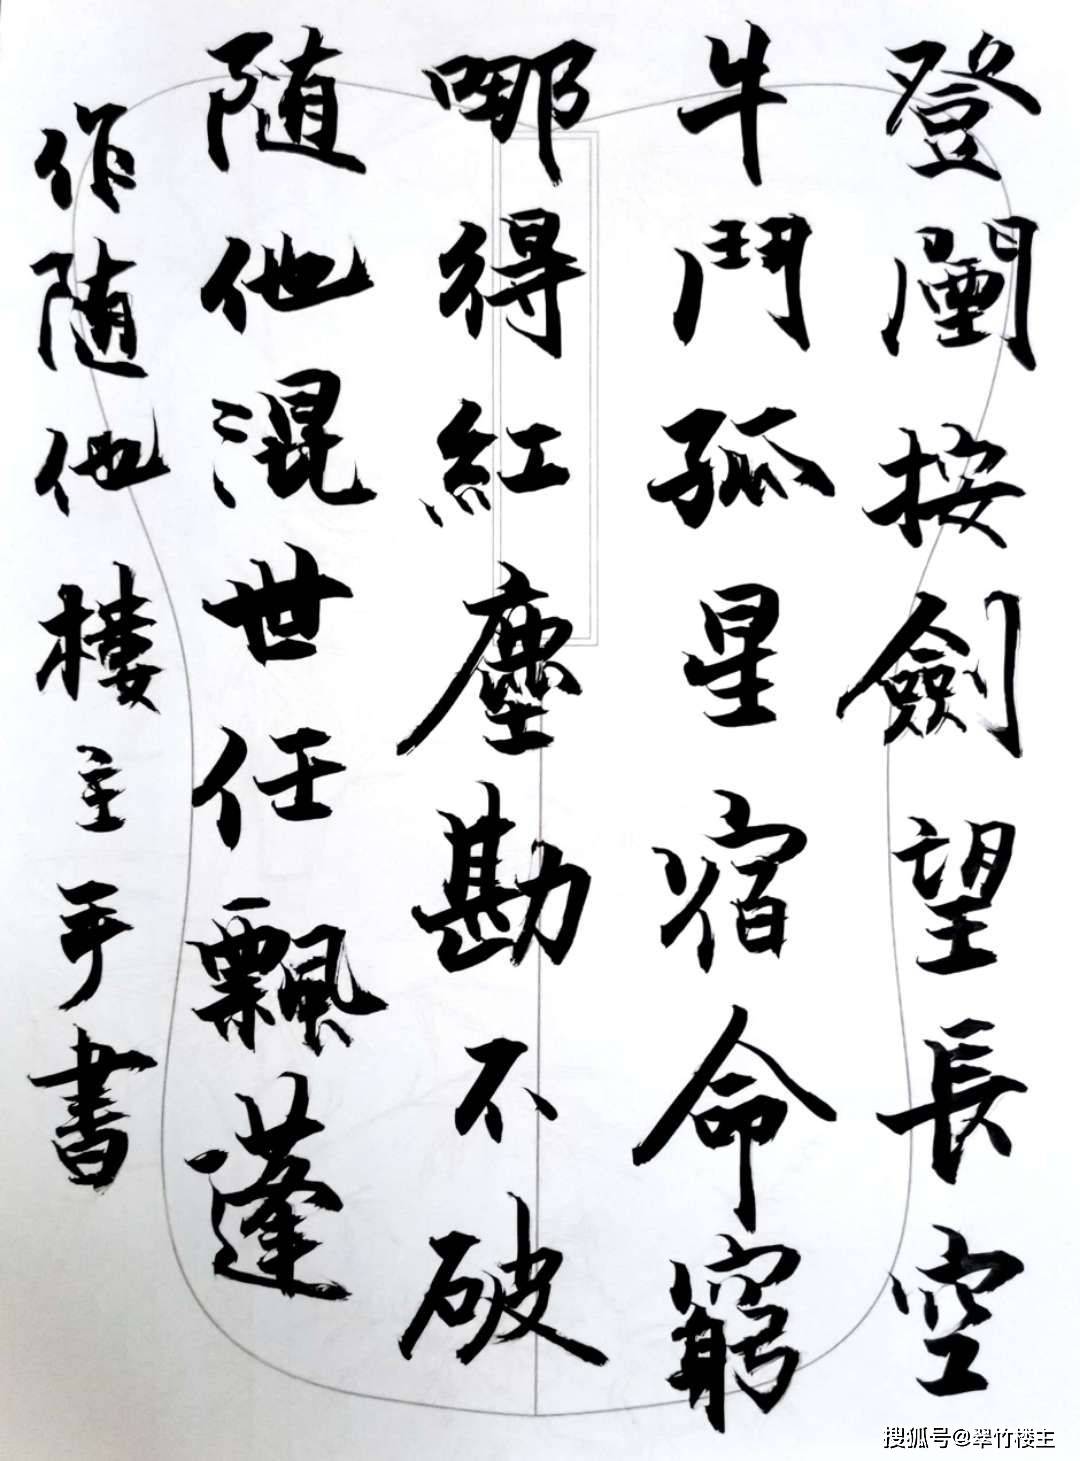 登闉按劍望長空
牛鬥孤星宿命窮
哪得紅塵勘不破
随他混世任飄蓬
作随他樓主手書
搜狐号@翠竹楼主